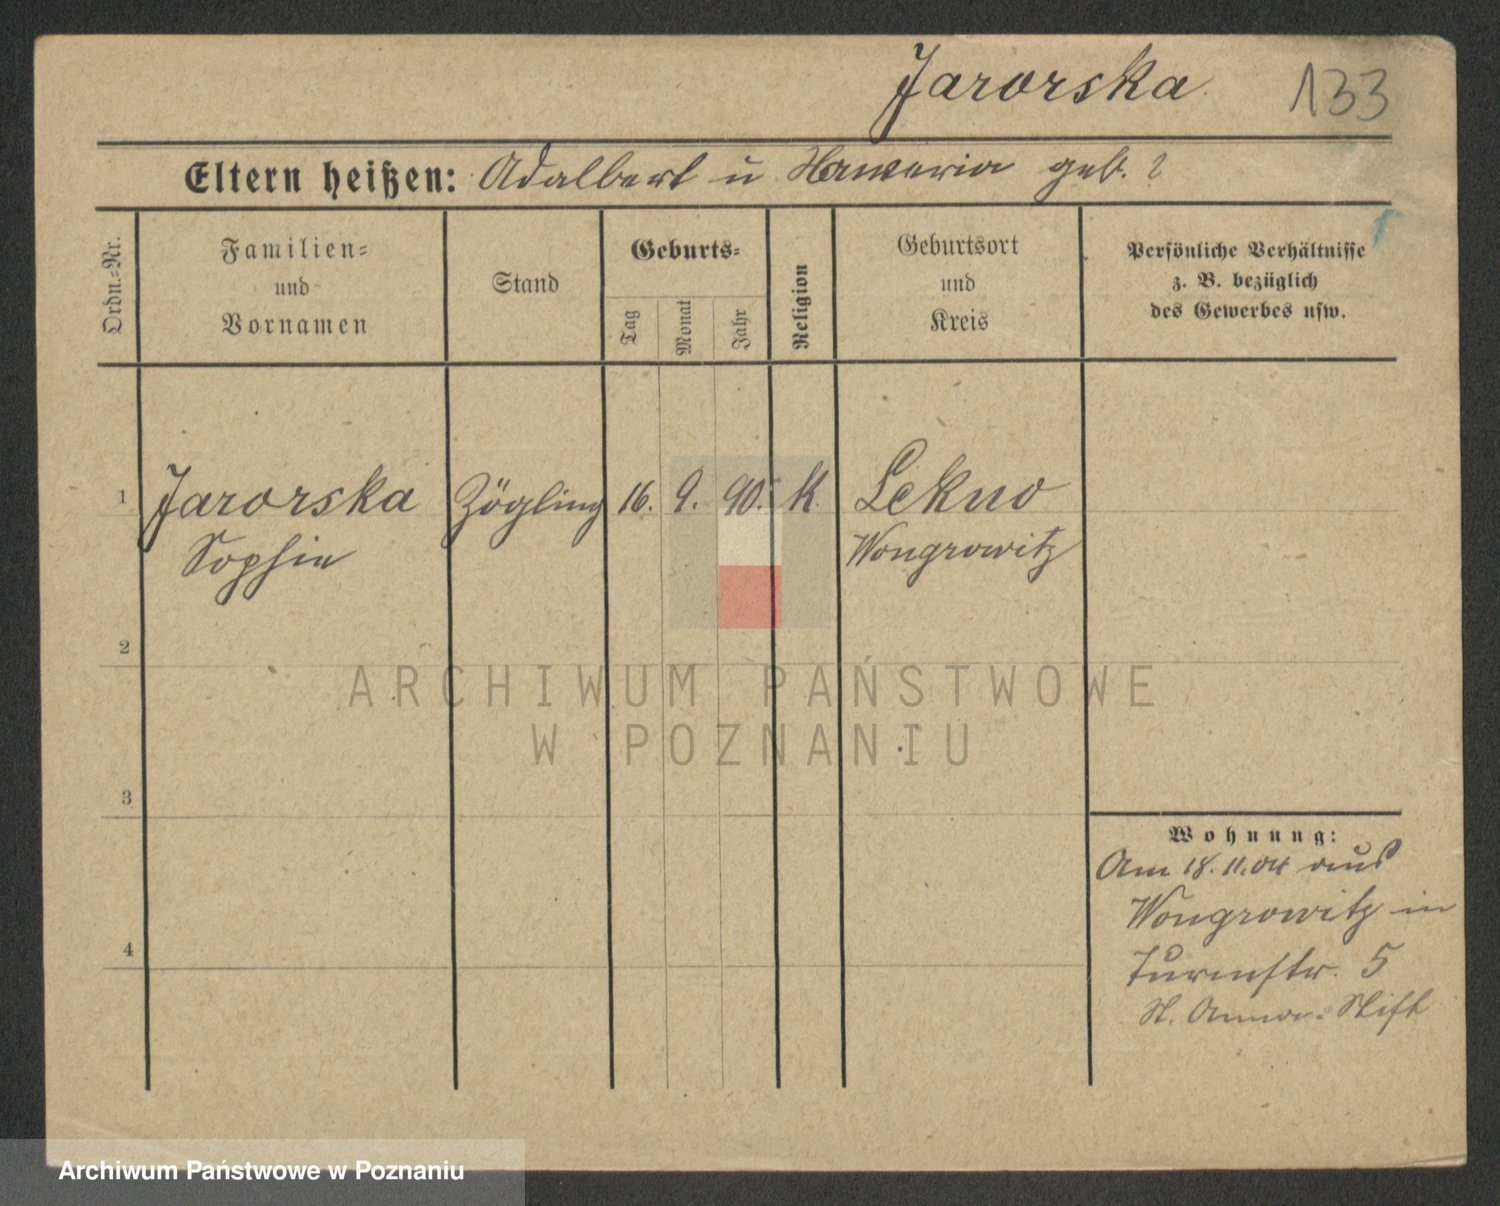 Jarorska 133
Eltern heißen: Adalbert u geb. ?
Ordn.=Nr.
Familien=
und
Vornamen
Stand
Geburts=
Tag Monat Jahr
Religion
Geburtsort
und
Kreis
Persönliche Verhältnisse
z. B. bezüglich
des Gewerbes usw.
1 Jarorska Zögling 16. 9. 90. K. Lekno
Sophie Wongrowitz
2
ARCHIWUM PAŃSTWOWE
W POZNANIU
3
Wohnung:
Am 18.11.04 aus
Wongrowitz in
Turmstr. 5
St. Anna-Stift
4
Archiwum Państwowe w Poznaniu